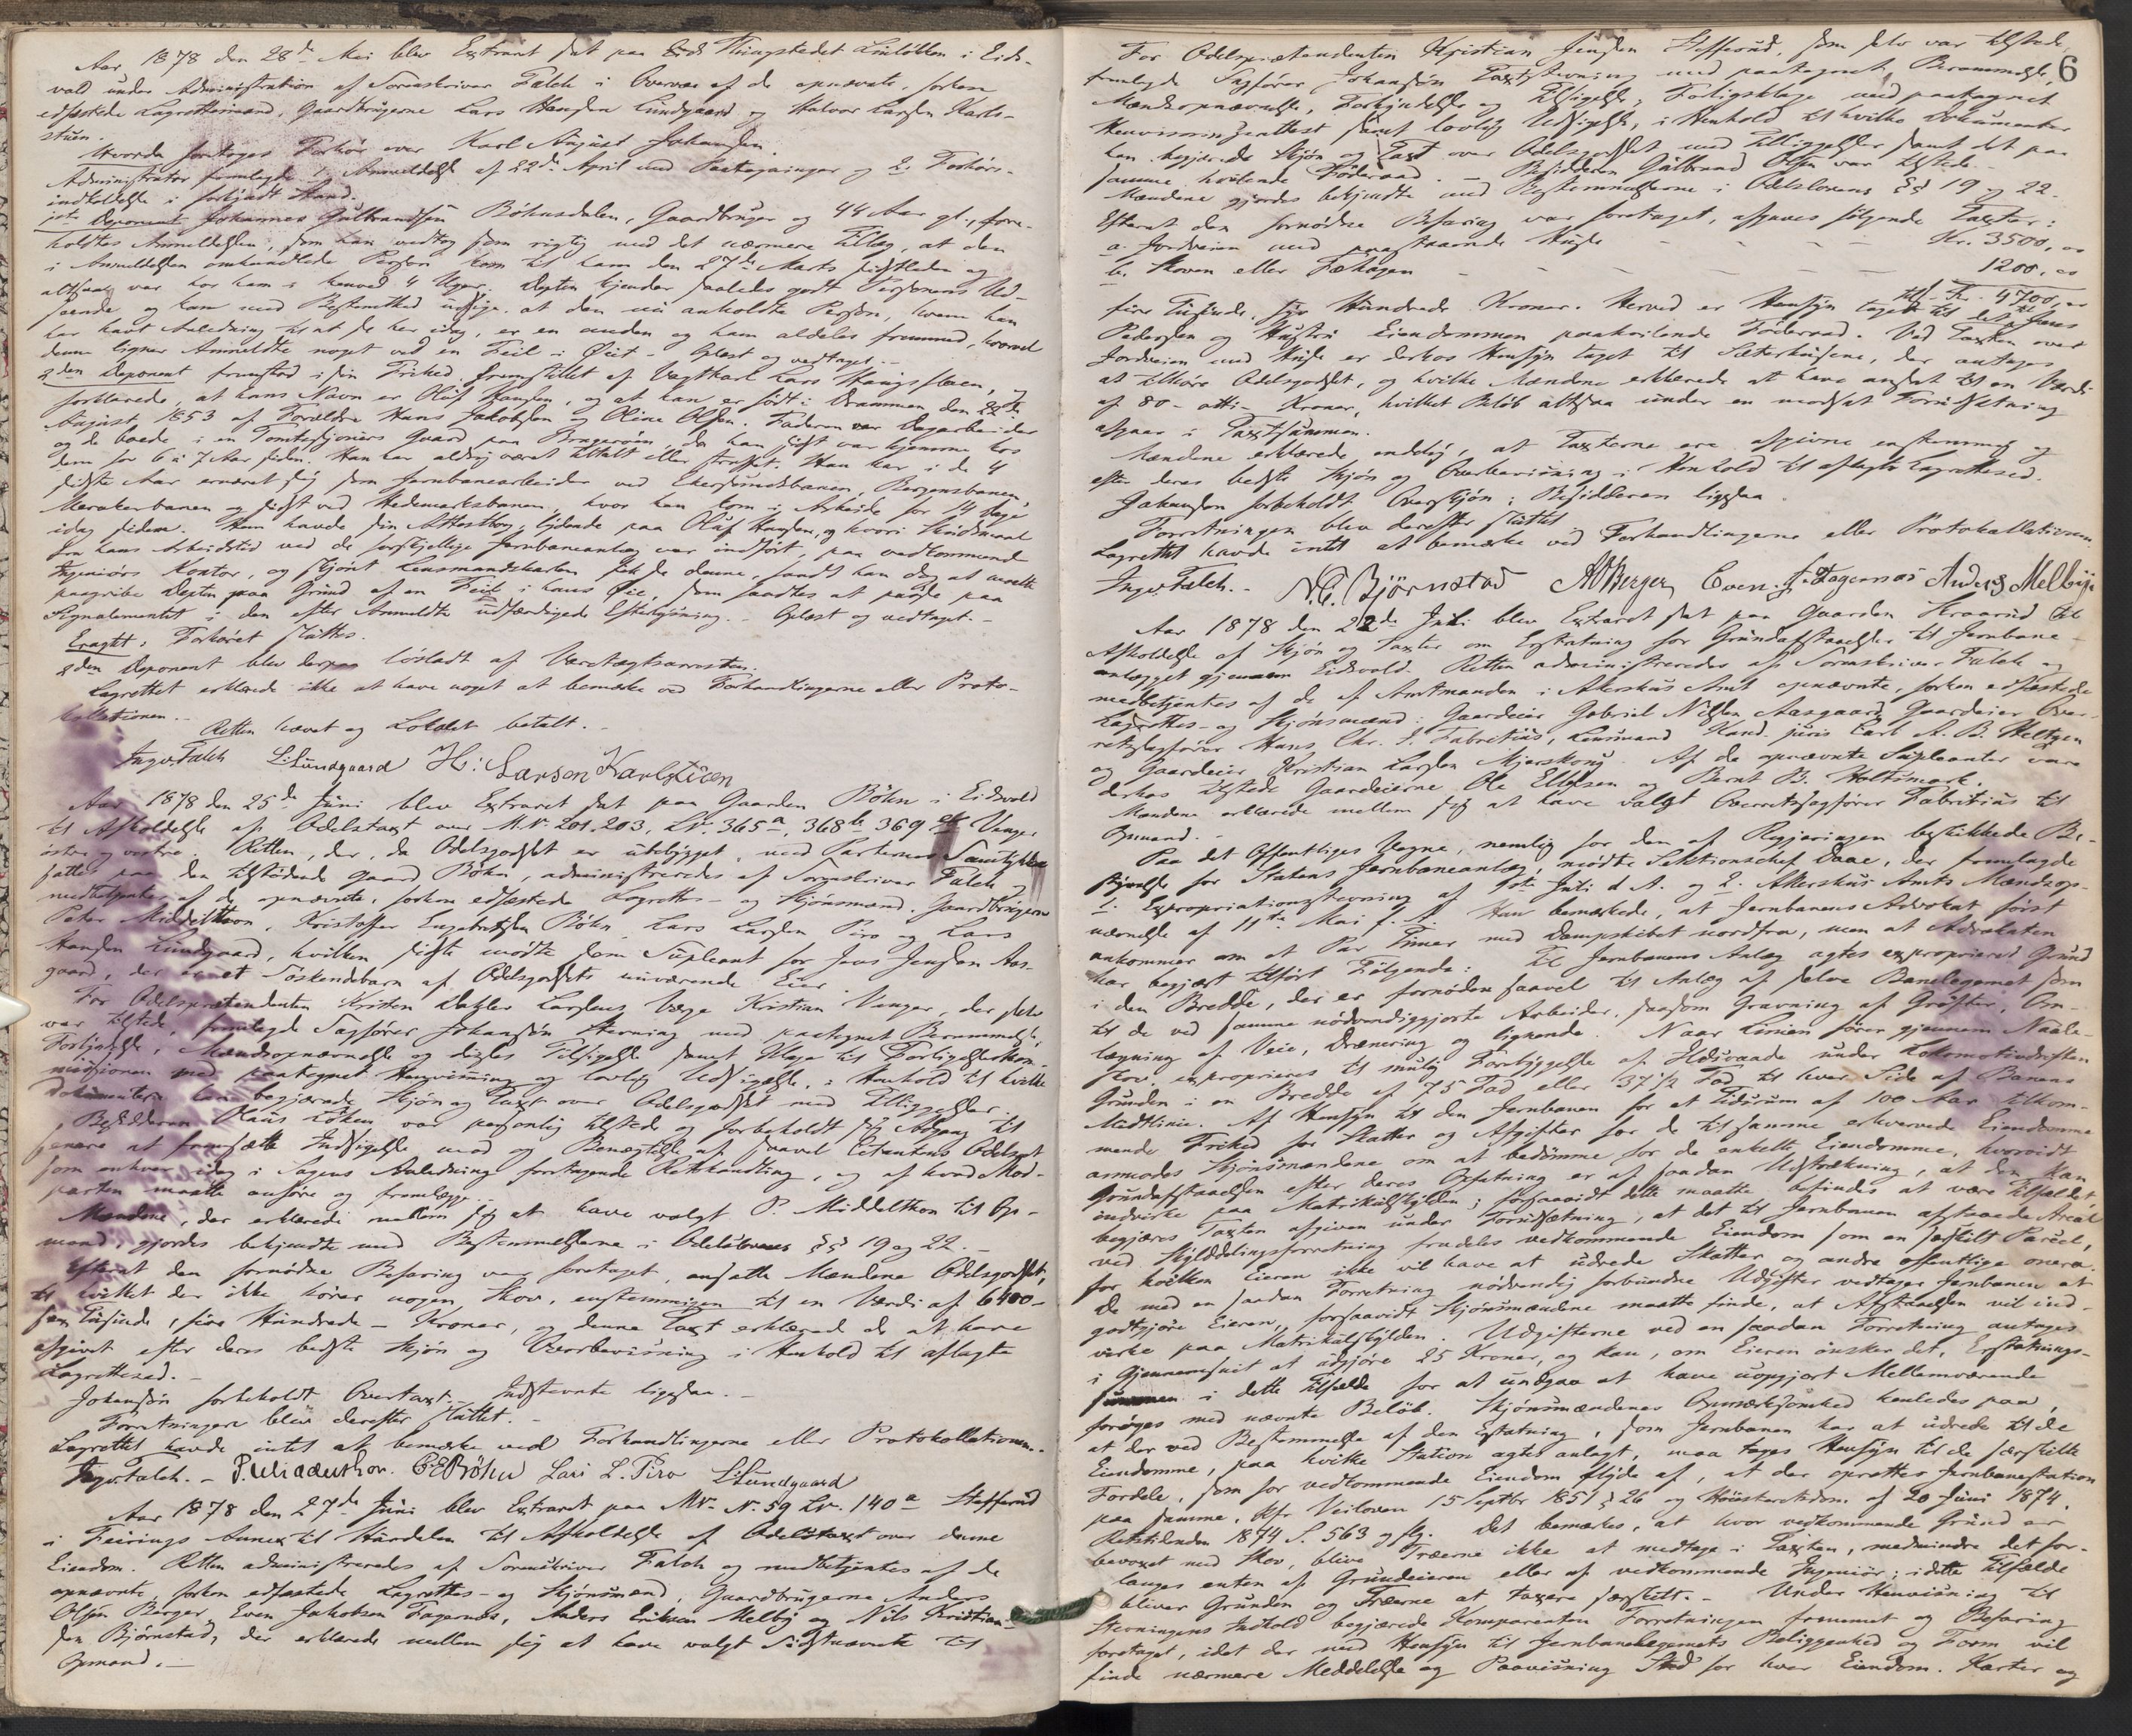 Aar 1878 den 28de Mai blev Extraret sat paa Thingstedet Linløkken i Eids-
vold under Administration af Sorenskriver Falch i Overvær af de opnævnte, forhen
edfæstede Lagrettesmænd, Gaardbrugerne Lars Hansen Lundgaard og Halvor Larsen Karls-
stuen.
Hvorda foretoges Forhør over Karl August Johansen.
Administrator fremlagde 1. Anmeldelse af 22de April med Paategninger og 2. Forhørs-
indkaldelse i forkyndt Stand.
1ste Deponent Johannes Gulbrandsen Bøhnsdalen, Gaardbruger og 44 Aar gl., fore-
holdtes Anmeldelsen, som han vedtog som rigtig med det nærmere Tillæg, at den
i Anmeldelsen omhandlede Person kom til ham den 27de Marts sidstleden og
altsaa var hos ham i henved 4 Uger. Depten kjender saaledes godt Personens Ud-
seende og kan med Bestemthed udsige, at den nu anholdte Person, hvem han
har havt Anledning til at se her idag, er en anden og ham aldeles fremmed, hvorvel
denne ligner Anmeldte noget ved en Feil i Øiet. - Oplæst og vedtaget. -
2den Deponent fremstod i sin Frihed fremstillet af Vægtkarl Lars Hengsleen, og
forklarede, at hans Navn er Oluf Hansen, og at han er født i Drammen den 22de
August 1853 af Forældre Hans Jakobsen og Oline Olsen. Faderen var Dagarbeider
og de boede i en Tomtesjoners Gaard paa Bragerøen, da han sidst var hjemme hos
dem for 6 à 7 Aar siden. Han har aldrig været tiltalt eller straffet. Han har i de 4
sidste Aar ernæret sig som Jernbanearbeider ved Ekersundsbanen, Bergensbanen,
Merakerbanen og sidst ved Hedemarksbanen, hvor han kom i Arbeide for 14 Dage
idag siden. Han havde sin Attestbog, lydende paa Oluf Hansen, og hvori Skudsmaal
fra hans Arbeidstid ved de forskjellige Jernbaneanlæg var indført, paa vedkommende
Ingeniørs Kontor, og skjønt Lensmandskarlen fik se denne, fandt han dog at maatte
paagribe Depten paa Grund af en Feil i hans Øie, som saadtes at passe paa
Signalementet i den efter Anmeldte udfærdigede Efterlysning. - Oplæst og vedtaget. -
Eragtet: Forhøret sluttes.
2den Deponent blev derpaa løsladt af Varetægtsarresten.
Lagrettet erklærede ikke at have noget at bemærke ved Forhandlingerne eller Proto-
kollationen. -
Retten hævet og Lokalet betalt. -
Ingv. Falch L. Lundgaard H: Larsen Karlstuen
Aar 1878 den 25de Juni blev Extraret sat paa Gaarden Bøhn i Eidsvold
til Afholdelse af Odelstaxt over M.No. 201. 203, LNo. 365a, 368b 369 Venger
østre og vestre. Retten, der, da Odelsgodset er ubebygget, med Parternes Samtykke
sattes paa den tilstødende Gaard Bøhn, administreredes af Sorenskriver Falch og
medbetjentes af de opnævnte, forhen edfæstede Lagrettes- og Skjønsmænd, Gaardbrugerne
Peter Middelthon, Kristoffer Engebretsen Bøhn, Lars Larsen Piro og Lars
Hansen Lundgaard, hvilken sidste mødte som Supleant for Jens Jensen Aas-
gaard, der var Søskendebarn af Odelsgodsets nuværende Eier.
For Odelsprætendenten Kristen Larsens Værge Kristian Venger, der selv
var tilstede, fremlagde Sagfører Johansen Stevning med paategnet Berammelse,
Forkyndelse, Mændsopnævnelse og disses Tilsigelse samt Klage til Forligelseskom-
missionen med paategnet Henvisning og lovlig Udsigelse, i Henhold til hvilke
Dokumenter han begjærede Skjøn og Taxt over Odelsgodset med Tilliggelser.
Besidderen Klaus Løken var personlig tilstede og forbeholdt sig Adgang til
senere at fremsætte Indsigelse mod og Benægtelse af saavel Citantens Odelsret
som enhver idag i Sagens Anledning foretagende Retshandling, og af hvad Mod-
parten maatte anføre og fremlægge. -
Mændene, der erklærede mellem sig at have valgt P. Middelthon til Op-
mand, gjordes bekjendte med Bestemmelserne i Odelslovens §§ 19 og 22. -
Efterat den fornødne Befaring var foretaget, ansatte Mændene Odelsgodset,
til hvilket der ikke hører nogen Skov, enstemmigen til en Værdi af 6400 -
sex Tusinde, fire Hundrede - Kroner, og denne Taxt erklærede de at have
afgivet efter deres bedste Skjøn og Overbevisning i Henhold til aflagte
Lagrettesed. -
Johansen forbeholdt Overtaxt. Indstevnte ligesaa. -
Forretningen blev derefter sluttet. -
Lagrettet havde intet at bemærke ved Forhandlingerne eller Protokollationen. -
Ingv. Falch. - P. Middelthon. C E Bøhn Lars L. Piro L. Lundgaard
Aar 1878 den 27de Juni blev Extraret paa MNo. No. 59 LNo. 140a Steffensrud
i Feirings Annex til Hurdalen til Afholdelse af Odelstaxt over denne
Eiendom. Retten administreredes af Sorenskriver Falch og medbetjentes af de
opnævnte, forhen edfæstede Lagrettes- og Skjønsmænd, Gaardbrugerne Anders
Olsen Berger, Even Jakobsen Fagernæs, Anders Eriksen Melby og Nils Kristian-
sen Bjørnstad, der erklærede mellem sig at have valgt Sidstnævnte til
Opmand. -
6
For Odelsprætendenten Kristian Jensen Steffensrud, som selv var tilstede,
fremlagde Sagfører Johansen Taxtstevning med paategnet Berammelse,
Mændsopnævnelse, Forkyndelse og Tilsigelse, Forligsklage med paategnet
Henvisningsattest samt lovlig Udsigelse, i Henhold til hvilke Dokumenter
han begjærede Skjøn og Taxt over Odelsgodset med Tilliggelser samt det paa
samme hvilende Føderaad. - Besidderen Gulbrand Olsen var tilstede.
Mændene gjordes bekjendte med Bestemmelserne i Odelslovens §§ 19 og 22.
Efterat den fornødne Befaring var foretaget, afgaves følgende Taxter:
a. Jordveien med paastaaende Huse - - - - Kr. 3500,00
b. Skoven eller Fæhagen - - - - - 1200,00
tils. Kr. 4700,00
fire Tusinde, syv Hundrede Kroner. Herved er Hensyn taget til det Jens
Pedersen og Hustru Eiendommen paahvilende Føderaad. Ved Taxten over
Jordveien med Huse er derhos Hensyn taget til Sæterhusene, der antages
at tilhøre Odelsgodset, og hvilke Mændene erklærede at have ansat til en Værdi
af 80 - otti - Kroner, hvilket Beløb altsaa under en modsat Forudsætning
afgaar i Taxtsummen.
Mændene erklærede endelig, at Taxterne ere afgivne enstemmig og
efter deres bedste Skjøn og Overbevisning i Henhold til aflagte Lagrettesed.
Johansen forbeholdt Overskjøn; Besidderen ligesaa.
Forretningen blev derefter sluttet.
Lagrettet havde intet at bemærke ved Forhandlingerne eller Protokollationen.
Ingv. Falch. - N. C. Bjørnstad AO Berger Even J. Fagernæs Anders Melbye
Aar 1878 den 22de Juli blev Extraret sat paa Gaarden Kraarud til
Afholdelse af Skjøn og Taxter om Erstatning for Grundafstaaelser til Jernbane-
anlægget gjennem Eidsvold. Retten administreredes af Sorenskriver Falch og
medbetjentes af de af Amtmanden i Akershus Amt opnævnte, forhen edfæstede
Lagrettes- og Skjønsmænd: Gaardeier Gabriel Nilsen Aasgaard, Gaardeier Over-
retssagfører Hans Chr. S. Fabritius, Lensmand Kand. juris Carl A. B. Heltzen
og Gaardeier Kristian Larsen Mjørskoug. Af de opnævnte Supleanter vare
derhos tilstede Gaardeierne Ole Ellefsen og Bernt P. Holtsmark.
Mændene erklærede mellem sig at have valgt Overretssagfører Fabritius til
Opmand. -
Paa det Offentliges Vegne, nemlig for den af Regjeringen beskikkede Be-
styrelse for Statens Jernbaneanlæg, mødte Sektionschef Daae, der fremlagde
1. Expropriationsstevning af 1ste Juli d. A. og 2. Akershus Amts Mændsop-
nævnelse af 11te Mai f. A. Han bemærkede, at Jernbanens Advokat først
ankommer om et Par Timer med Dampskibet nordfra, men at Advokaten
har begjæret tilført Følgende: Til Jernbanens Anlæg agtes exproprieret Grund
i den Bredde, der er fornøden saavel til Anlæg af selve Banelegemet som
til de ved samme nødvendiggjorte Arbeider, saasom Gravning af Grøfter, Om-
lægning af Veie, Drænering og lignende. Naar Linien fører gjennem Naale-
skov, exproprieres til mulig Forebyggelse af Ildsvaade under Lokomotivdriften
Grunden i en Bredde af 75 Fod eller 37½ Fod til hver Side af Banens
Midtlinie. Af Hensyn til den Jernbanen for et Tidsrum af 100 Aar tilkom-
mende Frihed for Skatter og Afgifter for de til samme erhvervede Eiendomme
anmodes Skjønsmændene om at bedømme for de enkelte Eiendomme, hvorvidt
Grundafstaaelsen efter deres Opfatning er af saadan Udstrækning, at den kan
indvirke paa Matrikulskylden; forsaavidt dette maatte befindes at være Tilfældet,
begjæres Taxten afgiven under Forudsætning, at det til Jernbanen afstaaede Areal
ved Skylddelingsforretning fradeles vedkommende Eiendom som en særskilt Parcel,
for hvilken Eieren ikke vil have at udrede Skatter og andre offentlige onera.
De med en saadan Forretning nødvendig forbundne Udgifter vedtager Jernbanen at
godtgjøre Eieren, forsaavidt Skjønsmændene maatte finde, at Afstaaelsen vil ind-
virke paa Matrikulskylden. Udgifterne ved en saadan Forretning antages
i Gjennemsnit at udgjøre 25 Kroner, og kan, om Eieren ønsker det, Erstatnings-
summen i dette Tilfælde for at undgaa at have uopgjort Mellemværende
forøges med nævnte Beløb. Skjønsmændenes Opmærksomhed henledes paa,
at der ved Bestemmelse af den Erstatning, som Jernbanen har at udrede til de
Eiendomme, paa hvilke Station agtes anlagt, maa tages Hensyn til de særskilte
Fordele, som for vedkommende Eiendom flyde af, at der oprettes Jernbanestation
paa samme, kfr. Veiloven 15 Septbr 1851 § 26 og Høiesteretsdom af 20 Juni 1874,
Retstidenden 1874 S. 563 og flg. Det bemærkes, at hvor vedkommende Grund er
bevoxet med Skov, blive Træerne ikke at medtage i Taxten, medmindre det for-
langes enten af Grundeieren eller af vedkommende Ingeniør; i dette Tilfælde
bliver Grunden og Træerne at taxere særskilt. - Under Henvisning til
Stevningens Indhold begjærede Komparenten Forretningen fremmet og Befaring
foretaget, idet der med Hensyn til Jernbanelegemets Beliggenhed og Form vil
finde nærmere Meddelelse og Paavisning Sted for hver Eiendom. Karter og